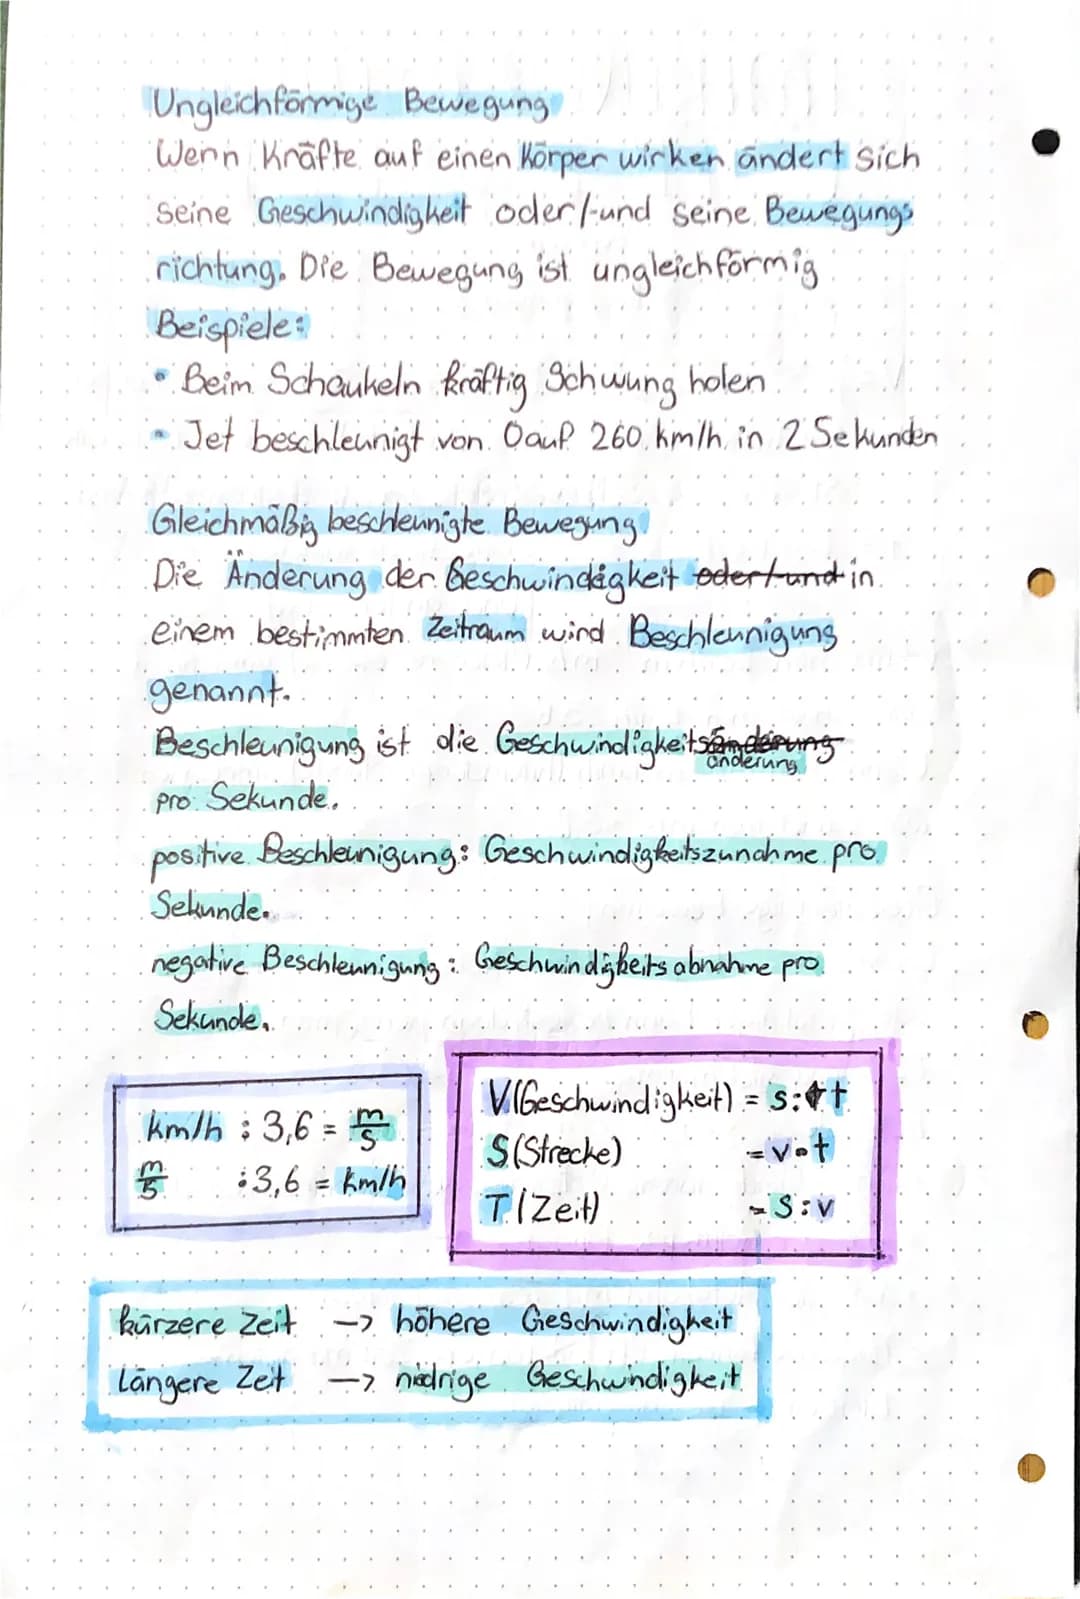 Ungleichförmige Bewegung
Wenn Kräfte auf einen Körper wirken ändert sich
seine Geschwindigkeit oder/-und seine Bewegungs
richtung. Die Bewegung ist ungleichförmig
Beispiele:
• Beim Schaukeln kräftig Schwung holen
• Jet beschleunigt von 0 auf 260 km/h in 2 Sekunden
Gleichmäßig beschleunigte Bewegung
Die Änderung der Geschwindigkeit oder/-und in
einem bestimmten Zeitraum wird Beschleunigung
genannt.
Beschleunigung ist die Geschwindigkeitsänderung
änderung
pro Sekunde.
positive Beschleunigung: Geschwindigkeitszunahme pro
Sekunde.
negative Beschleunigung: Geschwindigkeitsabnahme pro
Sekunde.
km/h : 3,6 = m/s
m/s : 3,6 = km/h
V (Geschwindigkeit) = s:t
S (Strecke) = v•t
T (Zeit) = S:v
kürzere Zeit —> höhere Geschwindigkeit
Längere Zeit —> niedrige Geschwindigkeit